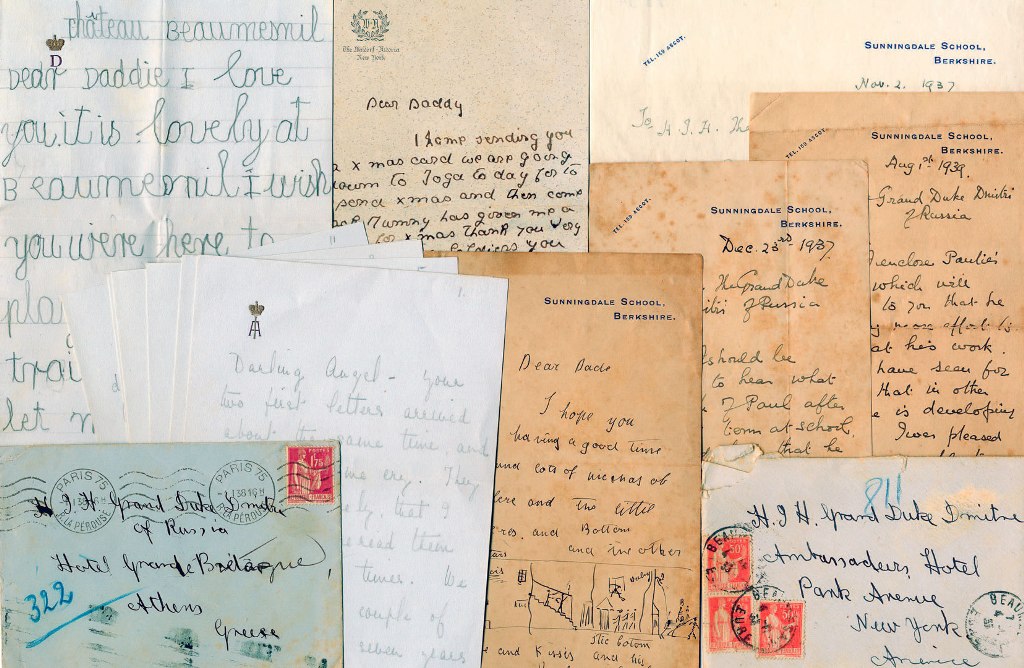 château Beaumesnil
D
Dear Daddie I love
you. it is lovely at
Beaumesnil I wish
you were here to
pla
trai
let
W A
The Waldorf-Astoria
New York
Dear Daddy
I am sending you
xmas card we are going
down to to day for to
send xmas and then come
Mummy has given me a
for xmas thank you very
soldiers you
TEL. 159 ASCOT.
SUNNINGDALE SCHOOL,
BERKSHIRE.
Nov. 2. 1937
To H. I. H. The
TEL. 159 ASCOT.
SUNNINGDALE SCHOOL,
BERKSHIRE.
Aug 1st 1939.
Grand Duke Dmitri
of Russia
enclose Paulie's
which will
to you that he
more effort to
at his work.
have seen for
that in other
e is developing
I was pleased
TEL. 159 ASCOT.
SUNNINGDALE SCHOOL,
BERKSHIRE.
Dec. 23rd 1937
The Grand Duke
itri of Russia
should be
to hear what
of Paul after
term at school
that he
1.
Darling Angel - your
two first letters arrived
about the same time, and
me cry. They
ly, that I
read them
times. We
couple of
seven years
SUNNINGDALE SCHOOL,
BERKSHIRE.
Dear Dade
I hope you
having a good time
and lots of
ere and the little
res, and Bottom
and two other
The botom
e and Kisses and
PARIS 75
R. LA PÉROUSE
PARIS 75
R. LA PÉROUSE
POSTES
1F75
H. I. H. Grand Duke Dmitri
of Russia
Hotel Grande Bretagne,
Athens
Greese
322
811
H. I. H. Grand Duke Dmitri
Ambassadeurs Hotel
Park Avenue
New York
BEAU
EURE
50c
50c
50c
BEAU